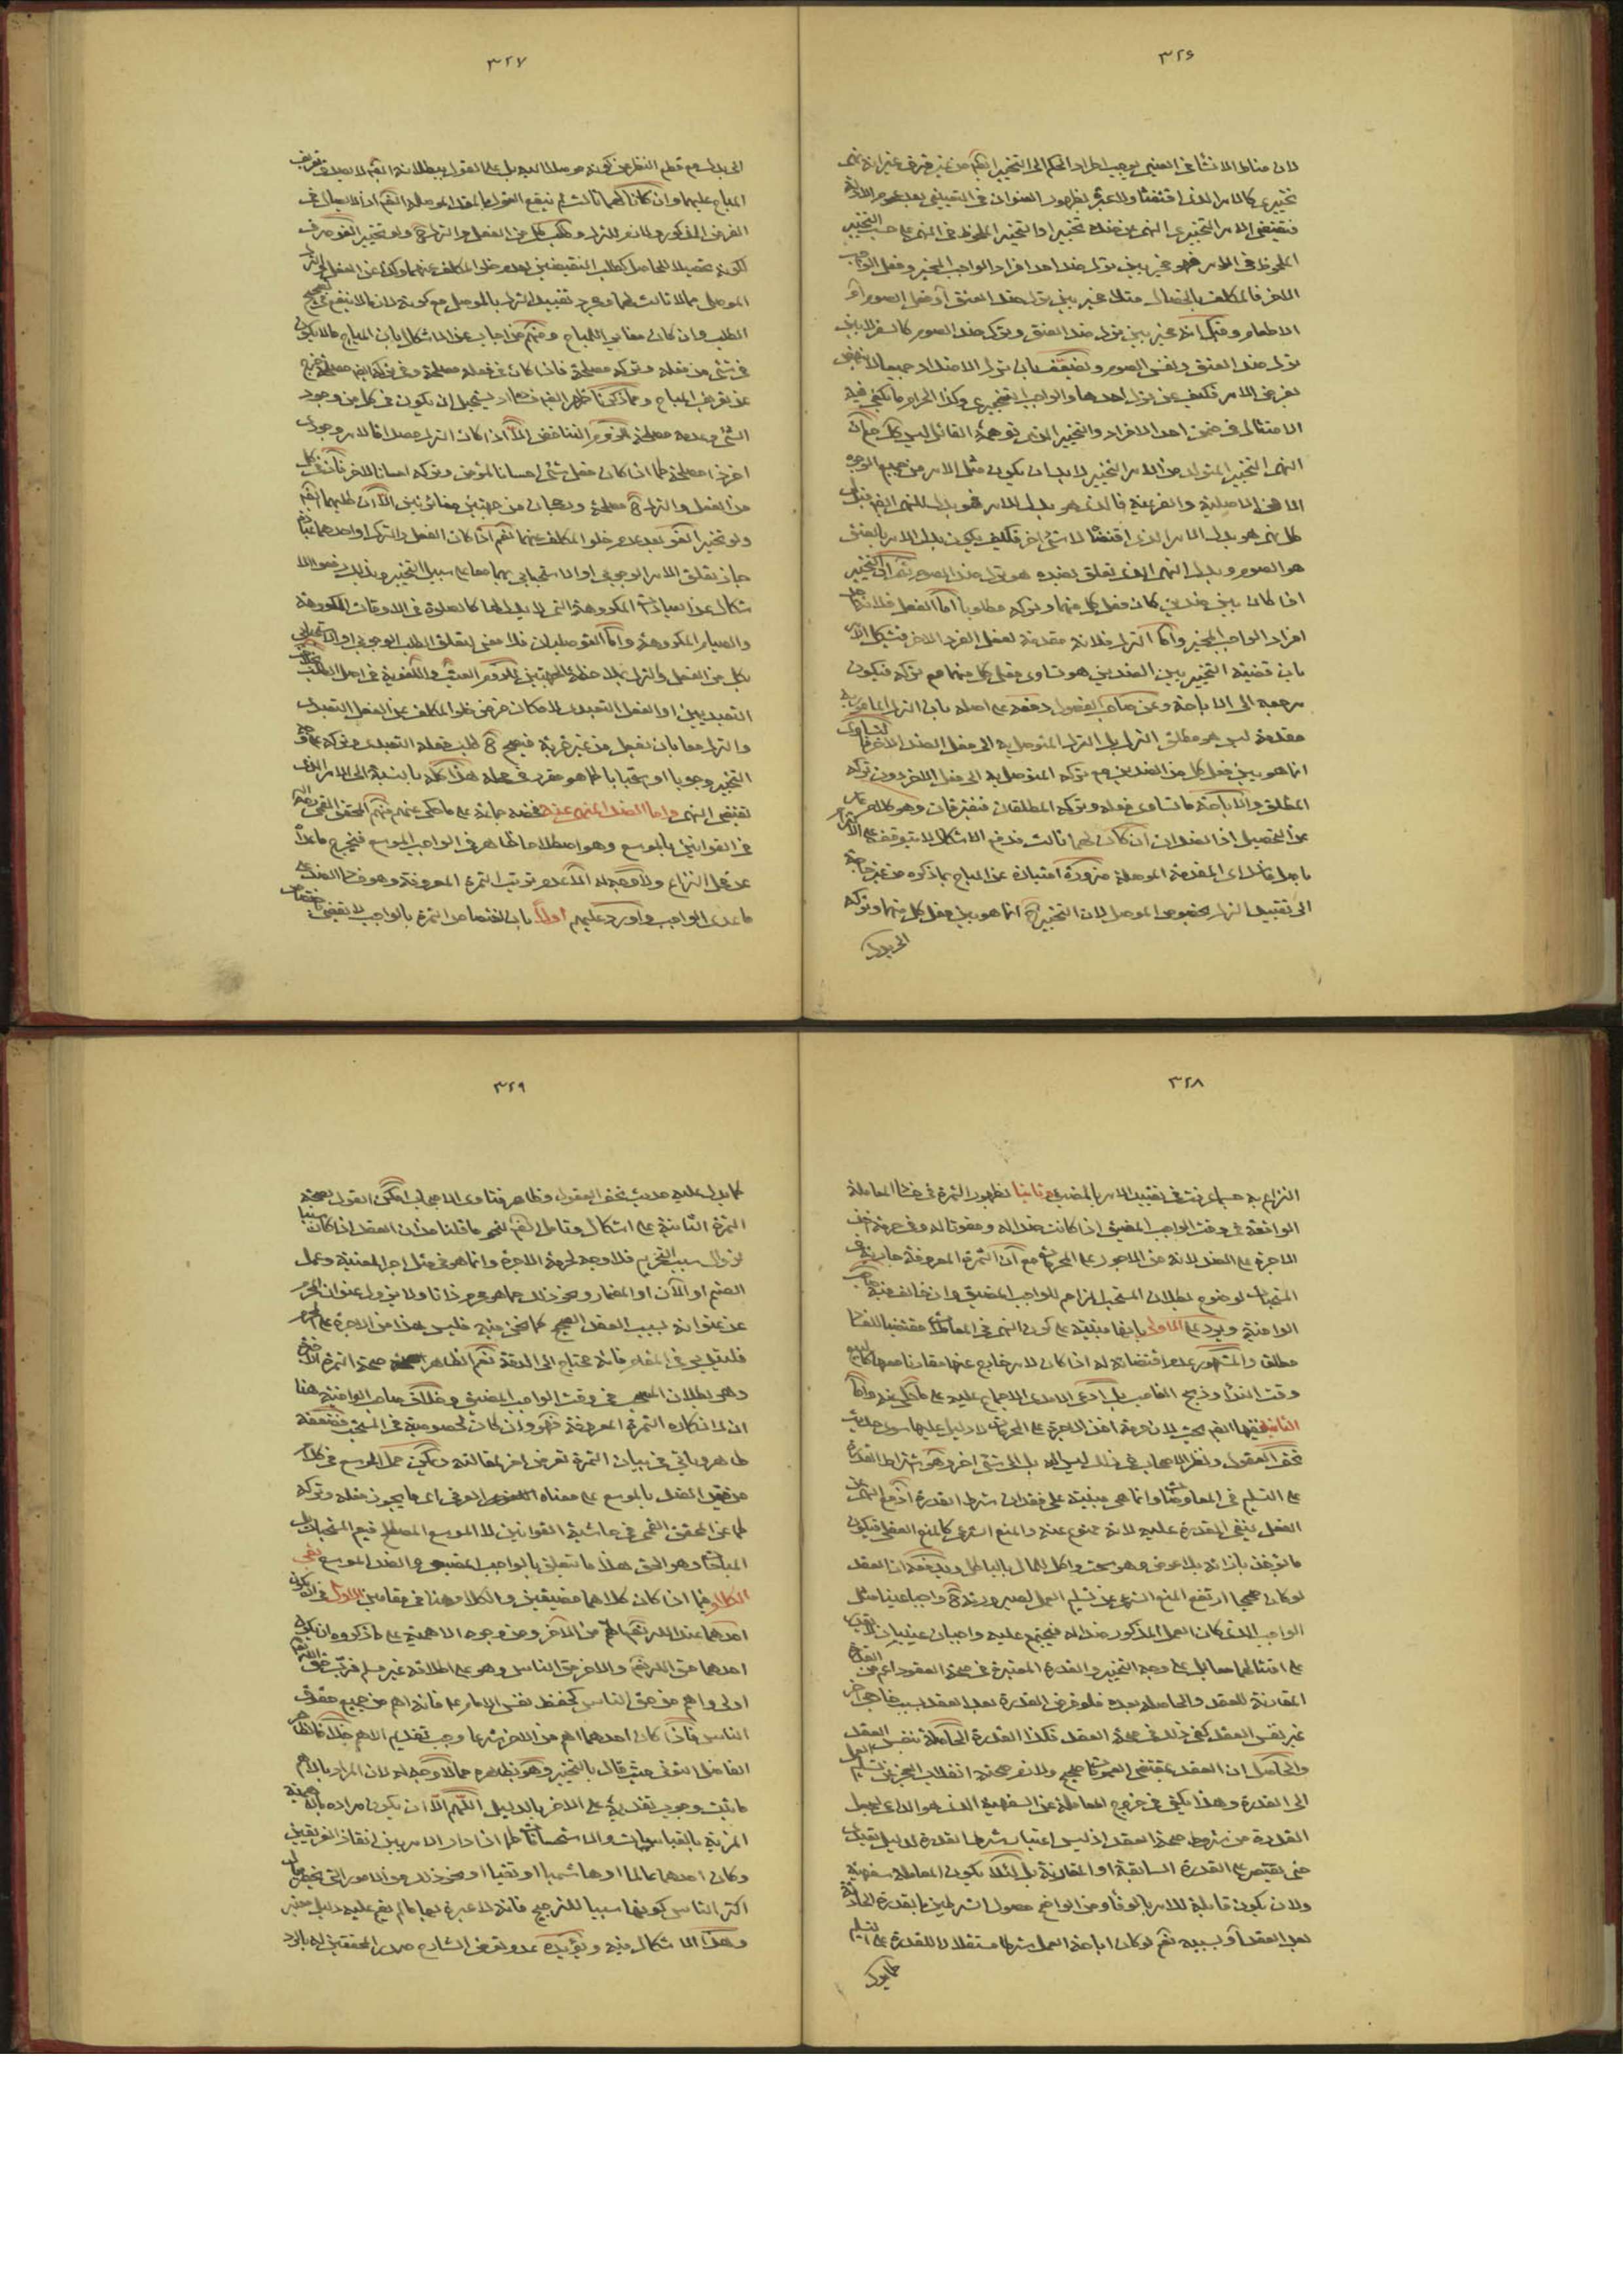 ٣٢٦
لان مناط الانشاء في الضدين يوجب اطراد الحكم الى التخيير ايضا من غير فرق غير انه نهى
تخييري كالامر الذي اقتضاه ولا عبرة بظهور العنوان في التعييني بعد عموم الادلة
فيقتضي الامر التخييري النهي عن ضده تخييرا والتخيير الملحوظ في النهي على حسب التخيير
الملحوظ في الامر فهو مخير بين ترك ضد احد افراد الواجب المخير وفعل الواجب
الاخر فالمكلف بالخصال مثلا مخير بين ترك ضد العتق او فعل الصوم او
الاطعام وقيل انه مخير بين ترك ضد العتق وترك ضد الصوم كالسفر لا بين
ترك ضد العتق ونفس الصوم ويضعف بان ترك الاضداد جميعا لا
لغرض الامر فكيف عن ترك احدها والواجب تخييري وكذا الحرام ما يكفي فيه
الامتثال في ضمن احد الافراد والتخيير الذي توهمه القائل ليس كل
النهي التخييري المتولد من الامر التخييري لا بد ان يكون مثل الامر من جميع الوجوه
الا في الاصلية والفرعية فالذي هو بدل الامر هو بدل للنهي ايضا
كل نهي هو بدل الامر الذي اقتضاه لا شئ اخر فكيف يكون بدل الامر بالعتق
هو الصوم وبدل النهي الذي تعلق بضده هو ترك ضد الصوم ثم ان التخيير
اذا كان بين ضدين كان فعل كل منهما وتركه مطلوبا اما الفعل فلانه
افراد الواجب المخير واما الترك فلانه مقدمة لفعل الفرد الاخر فيشكل الامر
بان قضية التخيير بين الضدين هو تساوي فعل كل منهما مع تركه فيكون
مرجعه الى الاباحة وعن صاحب الفصول دفعه على اصله بان الترك المأمور به
مقدمة ليس هو مطلق الترك بل الترك المتوصل به الى فعل الضد الاخر فالتساوي
انما هو بين فعل كل من الضدين مع تركه المتوصل به الى فعل الاخر دون تركه
المطلق والاباحة ما تساوى فعله وتركه المطلقان فيفترقان وهو كلام
عن التحصيل اذ الضدان ان كان لهما ثالث فدفع الاشكال لا يتوقف على
ما جعله لدى المقدمة الموصلة ضرورة امتيازه عن المباح بما ذكره من غير حاجة
الى تقييد الترك بخصوص الموصل لان التخيير ح انما هو بين فعل كل منهما وتركه
الى بدل
٣٢٧
الى بدل مع قطع النظر عن كونه موصلا اليه بل على القول ببطلانه ايضا لا يصدق تعريف
المباح عليهما وان كانا لهما ثالث لم ينفع القول بالمقدمة الموصلة ايضا اذ الايصال في
الفرض المذكور لازم للترك وطلب كل من الفعل والترك ح ولو تخييرا لغو صرف
لكونه تحصيلا للحاصل كطلب النقيضين لعدم خلو المكلف عنهما وكذا عن الفعل والترك
الموصل مما لا ثالث لهما ومجرد تقييد الترك بالموصل مع كونه لازما لا ينفع في تصحيح
الطلب وان كان مغايرا للمباح ومنهم من اجاب عن الاشكال بان المباح ما لا يكون
في شئ من فعله وتركه مصلحة فاذا كان في فعله مصلحة وفي تركه ايضا مصلحة خرج
عن تعريف المباح ومما ذكرنا ظهر ايضا فساده اذ يستحيل ان يكون في كل من وجود
الشئ وعدمه مصلحة للزوم التناقض الا اذا كان الترك مصداقا لامر وجودي
اخر ذا مصلحة كما اذا كان فعل شئ احسانا لمؤمن وتركه احسانا لاخر فان في كل
من الفعل والترك ح مصلحة ورجحان من جهتين متغايرتين الا ان طلبهما ايضا
ولو تخييرا لغو بعد عدم خلو المكلف عنهما نعم اذا كان الفعل والترك او احدهما عبادة
جاز تعلق الامر الوجوبي او الاستحبابي بهما معا على سبيل التخيير وبذلك رفعوا الا
شكال عن العبادة المكروهة التي لا بدل لها كالصلوة في الاوقات المكروهة
والصيام المكروهة واما التوصليان فلا معنى لتعلق الطلب الوجوبي او الاستحبابي
بكل من الفعل والترك بملاحظة الجهتين للزوم العبث واللغوية في اصل الطلب بخلاف
التعبديين او الفعل التعبدي لامكان فرض خلو المكلف عن الفعل التعبدي
والترك معا بان يفعل من غير قربة فيصح ح طلب فعله التعبدي وتركه على وجه
التخيير وجوبا او استحبابا كما هو مقرر في محله هذا كله بالنسبة الى الامر الذي
يقتضي النهي واما الضد المنهي عنه فخصه جماعة على ما حكي عنهم منهم المحقق القمي
في القوانين بالموسع وهو اصطلاحا ظاهر في الواجب الموسع فيخرج ما عداه
عن محل النزاع ولا وجه له الا عدم ترتب الثمرة المعروفة وهو فساد الضد على
ما عدا الواجب واورد عليهم اولا بان اختصاص الثمرة بالواجب لا يقتضي اختصاص
٣٢٨
النزاع به حسبما عرفت في تقييد الامر بالمضيق وثانيا بظهور الثمرة في فساد المعاملة
الواقعة في وقت الواجب المضيق اذا كانت ضدا له ومفوتا له وفي حرمة اخذ
الاجرة على الضد لانه من الاجور على المحرمات مع ان الثمرة المعروفة جارية في
المستحبات لوضوح بطلان المستحب المزاحم للواجب المضيق وان خالف فيه صاحب
الوافية ويرد على الاولى بانها مبنية على كون النهي في المعاملات مقتضيا للفساد
مطلقا والمشهور عدم اقتضائه له اذا كان لامر خارج عنها مقارنا معها كالبيع
وقت النداء وذبح الغاصب بل ادعى الامدي الاجماع عليه على ما حكي عنه واما
الثانية ففيها ايضا بحث لان حرمة اخذ الاجرة على المحرمات لا دليل عليها سوى حديث
تحف العقول ونظر الاصحاب في ذلك ليس اليه بل الى شئ اخر وهو اشتراط القدرة
على التسليم في المعاوضات وانما هي مبنية على فقدان شرط القدرة اذ مع النهي عن
الفعل ينتفي القدرة عليه لانه ممنوع عنه والمنع الشرعي كالمنع العقلي فيكون
ما يؤخذ بازائه بلا عوض وهو سحت واكل للمال بالباطل ويدفعه ان العقد
لو كان صحيحا ارتفع المنع الشرعي عن تسليم العمل لصيرورته ح واجبا عينيا مثل
الواجب الذي كان العمل المذكور ضدا له فيجتمع عليه واجبان عينيان لا يقدر
على امتثالهما معا بل على وجه التخيير والقدرة المعتبرة في صحة العقود اعم من القدرة
المقارنة للعقد والحاصلة بعده فلو فرض القدرة بعد العقد بسبب خارجي اخر
غير نفس العقد كفى ذلك في صحة العقد فكذا القدرة الحاصلة بنفس العقد
والحاصل ان العقد بمقتضى العمومات صحيح ولازم صحته انقلاب العجز عن تسليم العمل
الى القدرة وهذا يكفي في خروج المعاملة عن السفهية الذي هو الداعي لجعل
القدرة من شروط صحة العقد اذ ليس اعتبار شرط القدرة لدليل تعبدي
حتى يقتصر على القدرة السابقة او المقارنة بل لئلا يكون المعاملة سفهية
ولان يكون قابلة للامر بالوفاء ومن الواضح حصول الشرطين بالقدرة الحادثة
بعد العقد او بسببه نعم لو كان اباحة العمل شرطا مستقلا لا للقدرة على التسليم
كما يدل
٣٢٩
كما يدل عليه حديث تحف العقول وظاهر فتاوى الاصحاب امكن القول بصحة
الثمرة الثانية على اشكال وتامل ايضا لنحو ما قلنا من ان العقد اذا كان سببا
لزوال سبب التحريم فلا وجه لحرمة الاجرة وانما هو في مثل اجر المغنية وعمل
الصنم او الآلات او القمار ونحو ذلك مما هو محرم ذاتا ولا يزول عنوان المحرم
عن عنوانه بسبب العقد الصحيح كما نحن فيه فليس هذا من الاجرة على المحرم
فليتدبر في المقام فانه محتاج الى الدقة نعم الظاهر صحة الثمرة الاخيرة
وهي بطلان المستحب في وقت الواجب المضيق وخلاف صاحب الوافية هنا
ان كان انكاره الثمرة المعروفة فهو وان كان لخصوصية في المستحب فضعفه
ظاهر وياتي في بيان الثمرة تعرض اخر لمقالته ويمكن حمل الموسع في كلام
من قيد الضد بالموسع على معناه اللغوي العرفي اي ما يجوز فعله وتركه
كما عن المحقق القمي في حاشية القوانين لا الموسع المصطلح فيعم المستحبات بل
المباحات وهو الحق هذا ما يتعلق بالواجب المضيق والضد الموسع بقي
الكلام فيما اذا كان كلاهما مضيقين والكلام هنا في مقامين الاول في ان يكون
احدهما عند الله تعالى اهم من الآخر ومن وجوه الاهمية على ما ذكروه ان يكون
احدهما حق الله تعالى والاخر حق الناس وهو على اطلاقه غير مسلم فرب حق الله
اولى واهم من حق الناس كحفظ نفس الامام ع فانه اهم من جميع حقوق
الناس فاذا كان احدهما اهم من الاخر شرعا وجب تقديم الاهم خلافا لظاهر
الفاضل التوني حيث قال بالتخيير وهو بظاهره مما لا وجه له لان المراد بالاهم
ما ثبت وجوب تقديمه على الاخر بالدليل اللهم الا ان يكون مراده بالاهمية
المزية بالقياسات والاستحسانات كما اذا دار الامر بين انقاذ الغريقين
وكان احدهما عالما او هاشميا او تقيا او نحو ذلك من الامور التي يتخيل
اكثر الناس كونها سببا للترجيح فانه لا عبرة بها ما لم يقم عليه دليل معتبر
وهذا لا اشكال فيه ويؤيده عدم تعرض الشارح صدر المحققين له بالرد